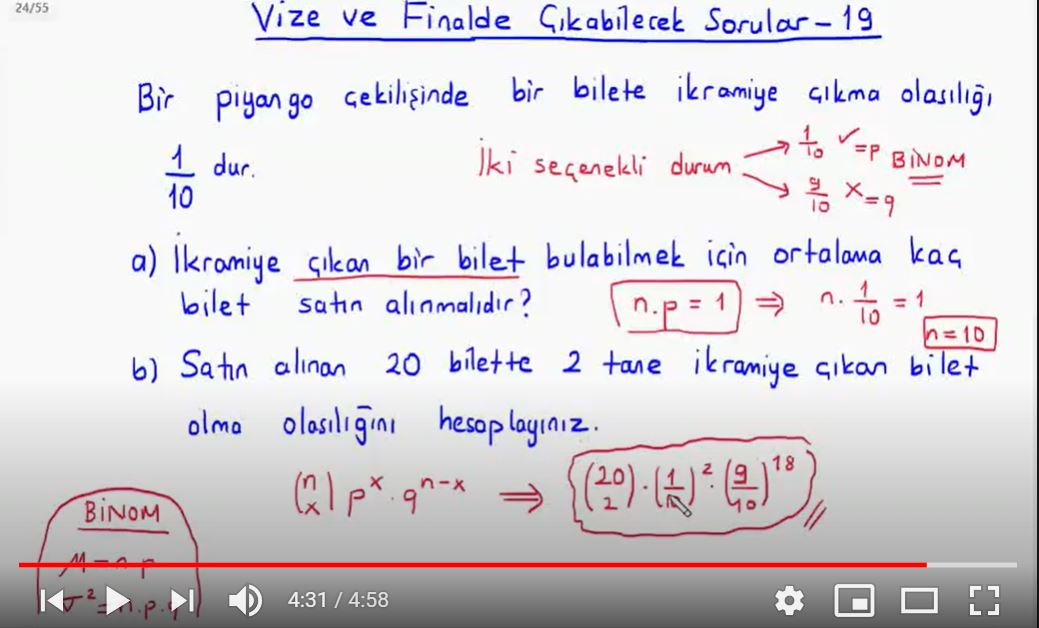 24/55
Vize ve Finalde Çıkabilecek Sorular - 19
Bir piyango çekilişinde bir bilete ikramiye çıkma olasılığı
1/10 dur.
İki seçenekli durum
1/10 ✓ = p
9/10 x = q
BİNOM
a) İkramiye çıkan bir bilet bulabilmek için ortalama kaç
bilet satın alınmalıdır?
n.p = 1 ⇒ n. 1/10 = 1
n = 10
b) Satın alınan 20 bilette 2 tane ikramiye çıkan bilet
olma olasılığını hesaplayınız.
(n x) p^x . q^(n-x) ⇒ (20 2) . (1/10)^2 . (9/10)^18
BİNOM
μ = n.p
σ² = n.p.q
4:31 / 4:58